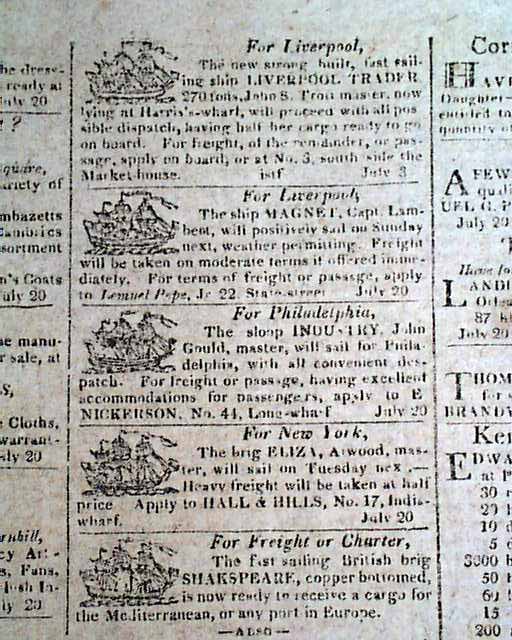 he dress-
ready at
July 20
?
square,
ariety of
mbazetts
Cambrics
sortment
n's Coats
July 20
he manu-
r sale, at
s,
e Cloths,
warrant-
ly 20
rnhill,
s, Fans,
ly 20
For Liverpool,
The new strong built, fast sail-
ing ship LIVERPOOL TRADER
270 tons, John S. Trott master, now
lying at Harris's-wharf, will proceed with all pos
sible dispatch, having half her cargo ready to go
on board. For freight, of the remainder, or pas-
sage, apply on board, or at No. 3, south side the
Market-house. istf July 3
For Liverpool,
The ship MAGNET, Capt. Lam-
bert, will positively sail on Sunday
next, weather permitting. Freight
will be taken on moderate terms if offered imme-
diately. For terms of freight or passage, apply
to Lemuel Pope, Jr 22, State-street July 20
For Philadelphia,
The sloop INDUSTRY, John
Gould, master, will sail for Phila-
delphia, with all convenient des-
patch. For freight or passage, having excellent
accommodations for passengers, apply to E
NICKERSON, No. 44, Long-wharf July 20
For New York,
The brig ELIZA, Atwood, mas-
ter, will sail on Tuesday nex .—
Heavy freight will be taken at half
price Apply to HALL & HILLS, No. 17, India-
wharf. July 20
For Freight or Charter,
The fast sailing British brig
SHAKSPEARE, copper bottomed,
is now ready to receive a cargo for
the Mediterranean, or any port in Europe.
—ALSO—
Cor
HAVE
Daughter
entitled to
quantity of
A FEW
quali
UEL G. P
July 20
Have fo
LANDI
87 h
July 20
THOM
for s
BRANDY
Ker
EDWA
at p
30
20 h
10 d
5 d
3000 b
50 h
60
15
200